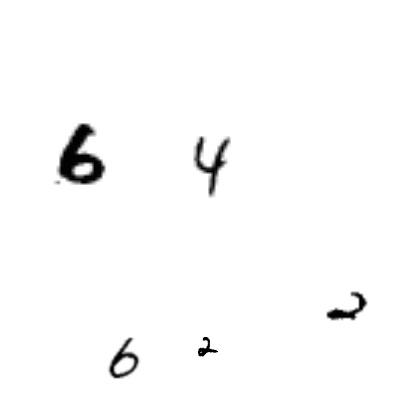 6 4
2
6 2